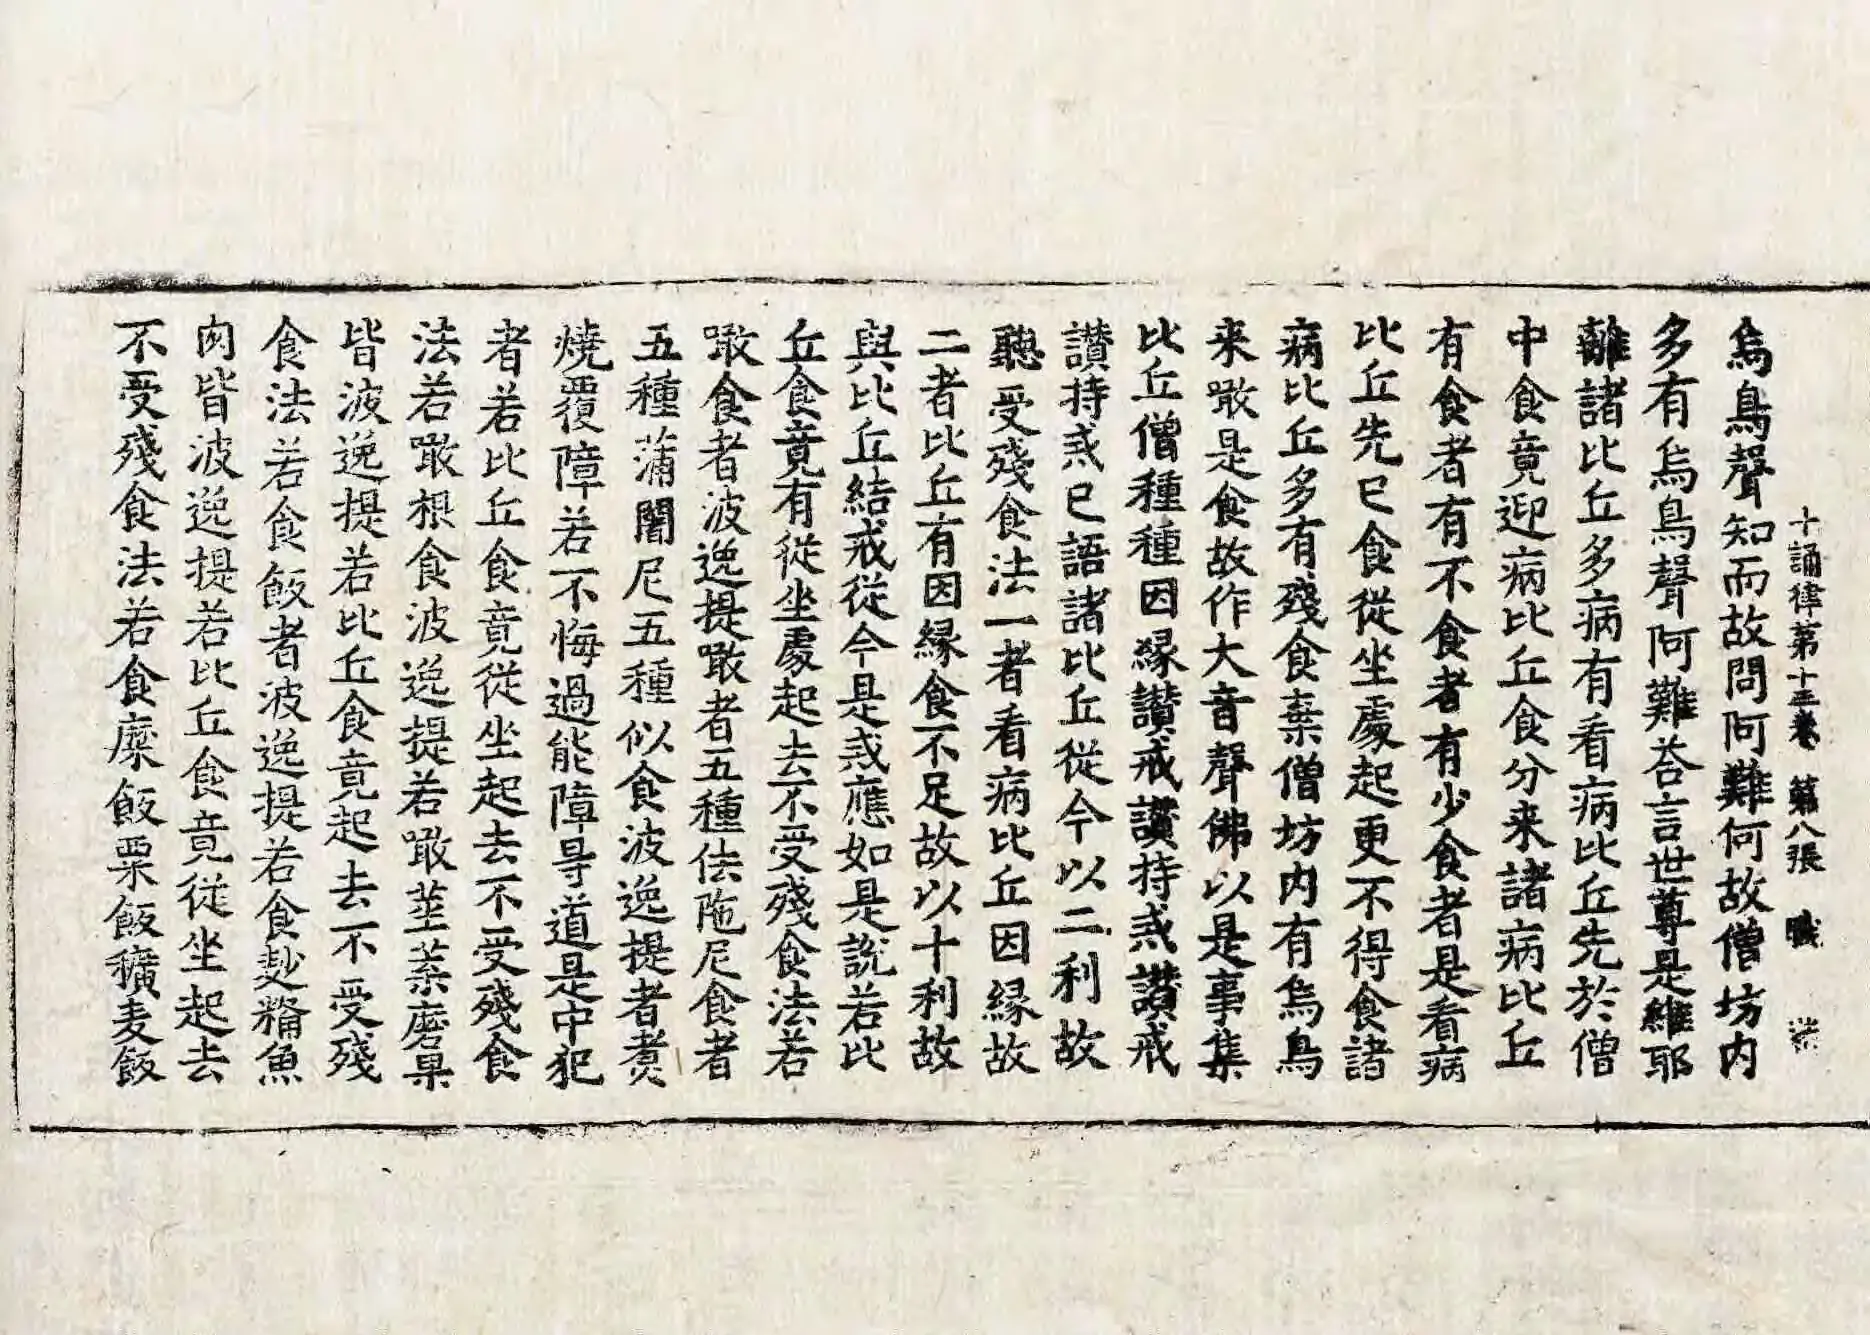 十誦律第十三卷 第八張 職
烏鳥聲知而故問阿難何故僧坊内
多有烏鳥聲阿難荅言世尊是維耶
離諸比丘多病有看病比丘先於僧
中食竟迎病比丘食分来諸病比丘
有食者有不食者有少食者是看病
比丘先已食從坐處起更不得食諸
病比丘多有殘食棄僧坊内有烏鳥
来噉是食故作大音聲佛以是事集
比丘僧種種因縁讃戒讃持戒讃戒
讃持戒已語諸比丘從今以二利故
聽受殘食法一者看病比丘因縁故
二者比丘有因縁食不足故以十利故
與比丘結戒從今是戒應如是說若比
丘食竟有從坐處起去不受殘食法若
噉食者波逸提噉者五種佉陁尼食者
五種蒲闍尼五種似食波逸提者煑
燒覆障若不悔過能障㝵道是中犯
者若比丘食竟從坐起去不受殘食
法若噉根食波逸提若噉莖葉磨果
皆波逸提若比丘食竟起去不受殘
食法若食飯者波逸提若食麨糒魚
肉皆波逸提若比丘食竟從坐起去
不受殘食法若食糜飯粟飯穬麦飯